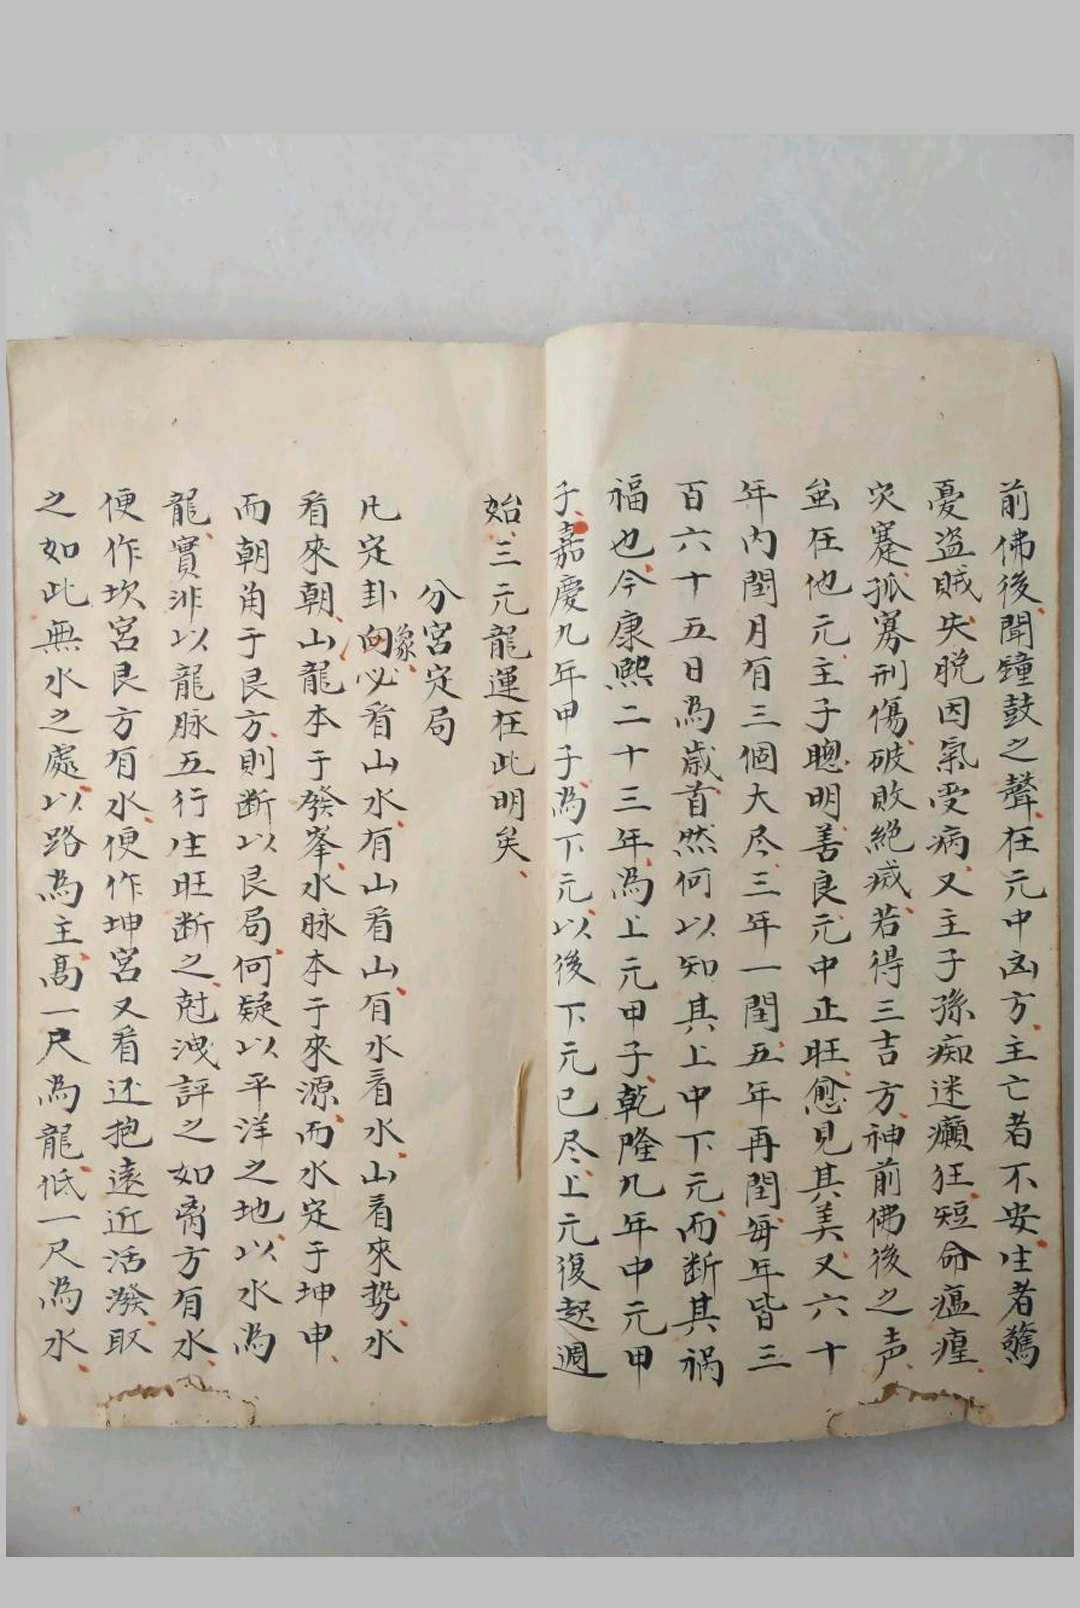 前佛後聞鐘鼓之聲在元中凶方主亡者不安生者驚
憂盜賊失脱因氣受病又主子孫痴迷癲狂短命瘟瘟
灾蹇孤寡刑傷破敗絶滅若得三吉方神前佛後之声
並在他元主子聰明善良元中正旺愈見其美又六十
年內閏月有三個大尽三年一閏五年再閏每年皆三
百六十五日為歲首然何以知其上中下元而断其禍
福也今康熙二十三年為上元甲子乾隆九年中元甲
子嘉慶九年甲子為下元以後下元已尽上元復起週
始三元龍運在此明矣
分宮定局
凡定卦向象必看山水有山看山有水看水山看來勢水
看來朝山龍本于發峯水脉本于來源而水定于坤申
而朝角于艮方則断以艮局何疑以平洋之地以水為
龍實非以龍脉五行生旺断之尅洩評之如离方有水
便作坎宮艮方有水便作坤宮又看还抱遠近活潑取
之如此無水之處以路為主高一尺為龍低一尺為水